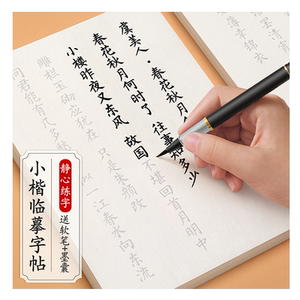 虞美人·春花秋月
春花秋月何时了 往事知多少
小楼昨夜又东风 故国不堪回首月明中
雕栏玉砌应犹在 只是朱颜改
问君能有几多
一江春水向东流
静心练字
送软笔+墨囊
小楷临摹字帖